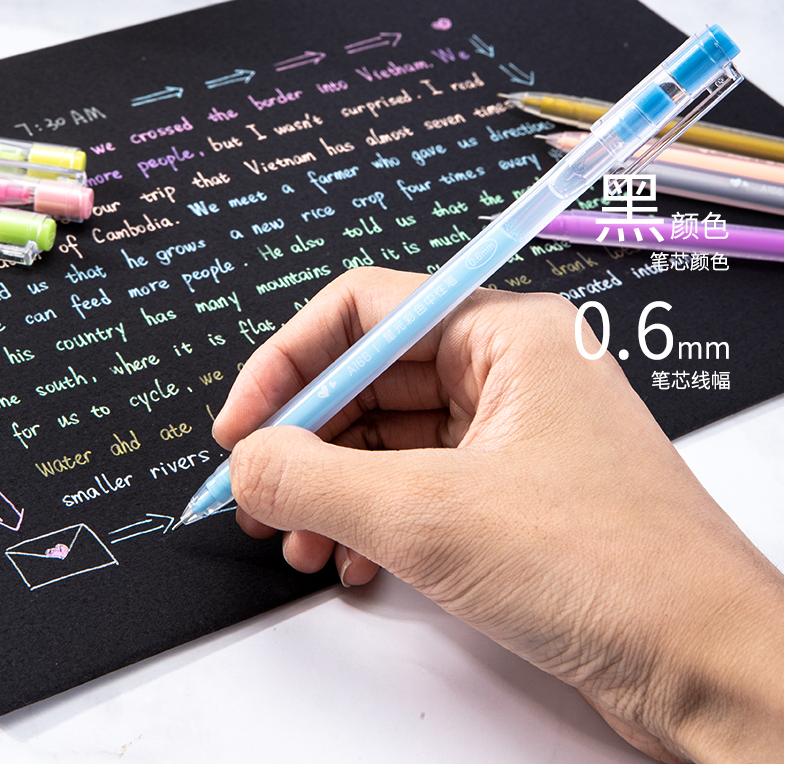 7:30 AM
we crossed the border into Vietnam. We
more people, but I wasn't surprised. I read
our trip that Vietnam has almost seven times
of Cambodia. We meet a farmer who gave us directions
us that he grows a new rice crop four times every
can feed more people. He also told us that the
his country has many mountains and it is much
south, where it is flat.
for us to cycle, we drank
Water and ate
smaller rivers.
黑 颜色
笔芯颜色
0.6mm
笔芯线幅
A1661 星光彩色中性笔 0.6mm